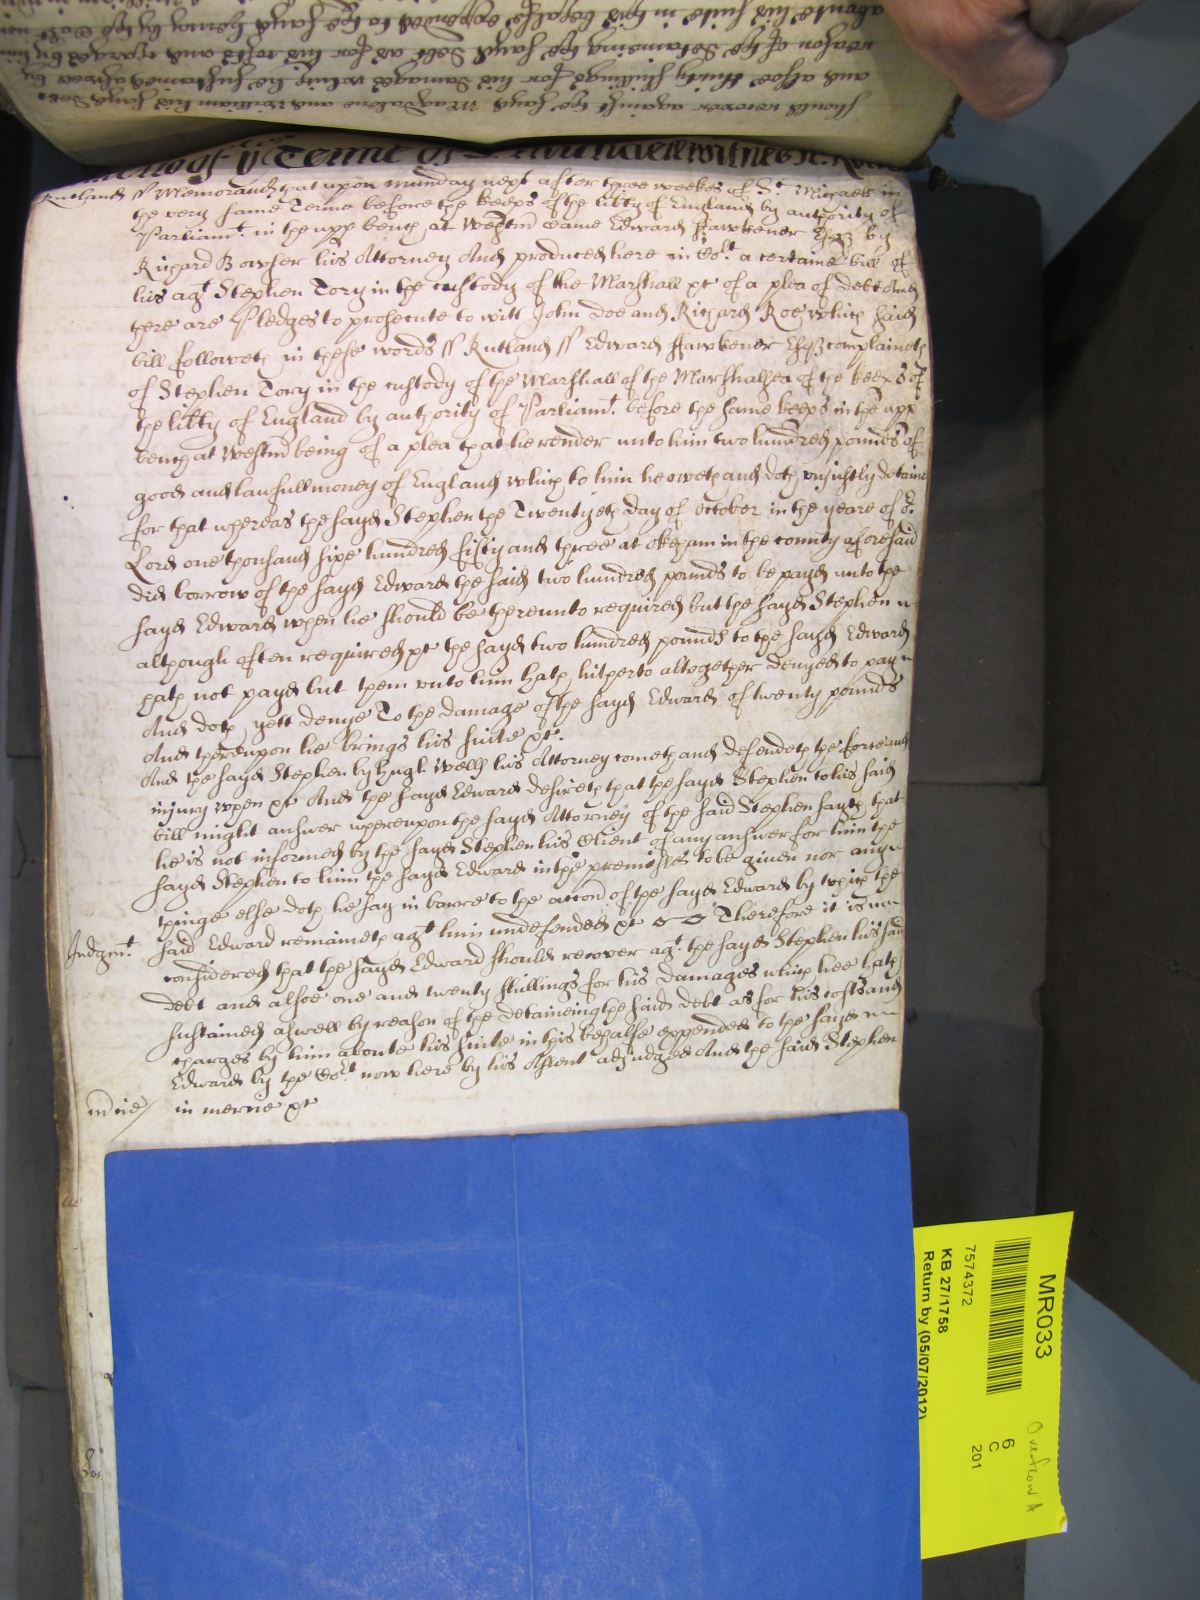 should recover against the sayd Magdalene and William his sayd debt
and alsoe thirty shillings for his damages which he susteined aswell by
reason of the detaineing the sayd debt as for his costs and charges by him
aboute his suite in this behalfe expended to the sayd
of ye Terme of St. Michaell
Rutland ss Memorand that upon munday next after three weekes of St. Michaell in
the very same Terme before the keeps of the libty of England by authority of
Parliamt. in the upp bench at Westm came Edward Hawkener Esqz by
Richard Bowher his Attorney And produced here in Cot. a certaine bill of
his agt Stephen Tory in the custody of the Marshall &c of a plea of debt And
there are Pledges to prosecute to witt John Doe and Richard Roe which said
bill followeth in these words ss Rutland ss Edward Hawkener Esqz complaineth
of Stephen Tory in the custody of the Marshall of the Marshallsea of the keeps of
the libty of England by authority of Parliamt. before the same keeps in the upp
bench at Westm being of a plea that he render unto him two hundred pounds of
good and laufull money of England which to him he oweth and doth unjustly detaine
for that whereas the sayd Stephen the Twentyeth day of October in the yeare of or.
Lord one thousand sixe hundred fifty and three at Okeham in the county aforesaid
did borrow of the sayd Edward the said two hundred pounds to be payd unto the
sayd Edward when he should be thereunto required but the sayd Stephen
although often required &c the sayd two hundred pounds to the sayd Edward
hath not payd but them unto him hath hitherto altogether denyed to pay
And doth yett denye To the damage of the sayd Edward of twenty pounds
And thereupon he brings his suite &c.
And the sayd Stephen by Hugh Wells his Attorney cometh and defendeth the force and
injury when &c And the sayd Edward desireth that the sayd Stephen to his said
bill might answer whereupon the sayd Attorney of the said Stephen sayth that
he is not informed by the sayd Stephen his Client of any answer for him the
sayd Stephen to him the sayd Edward in the premisses to be given nor any
thinge else doth he say in barre to the accon of the sayd Edward by which the
said Edward remaineth agt him undefended &c Therefore it is
Judgmt. considered that the sayd Edward should recover agt. the sayd Stephen his said
debt and alsoe one and twenty shillings for his damages which hee hath
susteined aswell by reason of the detaineing the said debt as for his costs and
charges by him aboute his suite in this behalfe expended to the sayd
Edward by the Cot. now here by his Assent adjudged And the said Stephen
in mercie &c
MR033
7574372
KB 27/1758
Return by (05/07/2012)
6
C
201
Overflow A